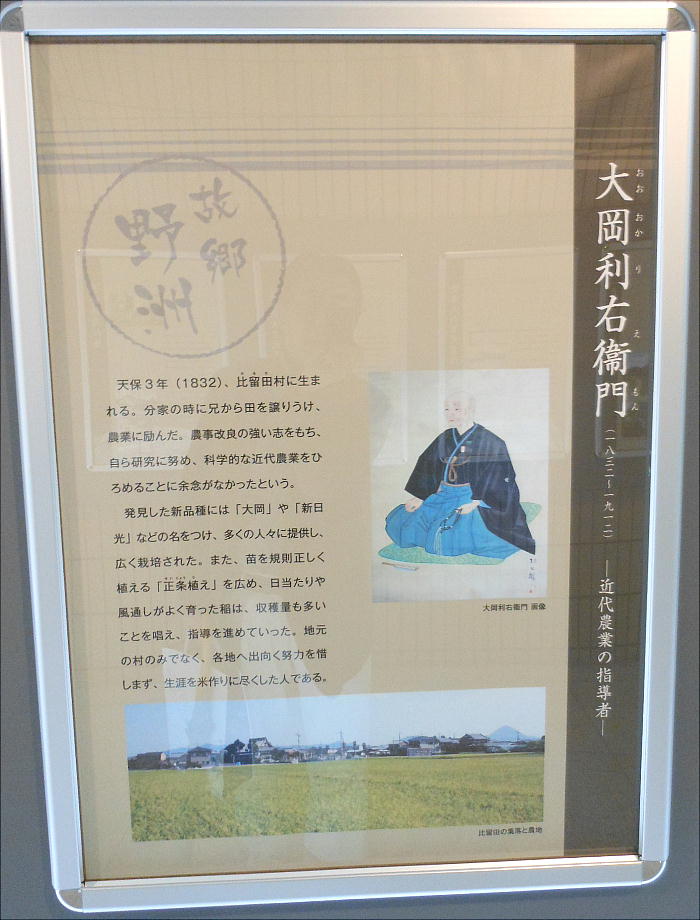 大岡利右衞門
おお おか り え もん
(一八三二~一九一二)
―近代農業の指導者―
故郷
野洲
天保3年(1832)、比留田村に生ま
れる。分家の時に兄から田を譲りうけ、
農業に励んだ。農事改良の強い志をもち、
自ら研究に努め、科学的な近代農業をひ
ろめることに余念がなかったという。
発見した新品種には「大岡」や「新日
光」などの名をつけ、多くの人々に提供し、
広く栽培された。また、苗を規則正しく
植える「正条植え」を広め、日当たりや
風通しがよく育った稲は、収穫量も多い
ことを唱え、指導を進めていった。地元
の村のみでなく、各地へ出向く努力を惜
しまず、生涯を米作りに尽くした人である。
大岡利右衞門 画像
比留田の集落と農地